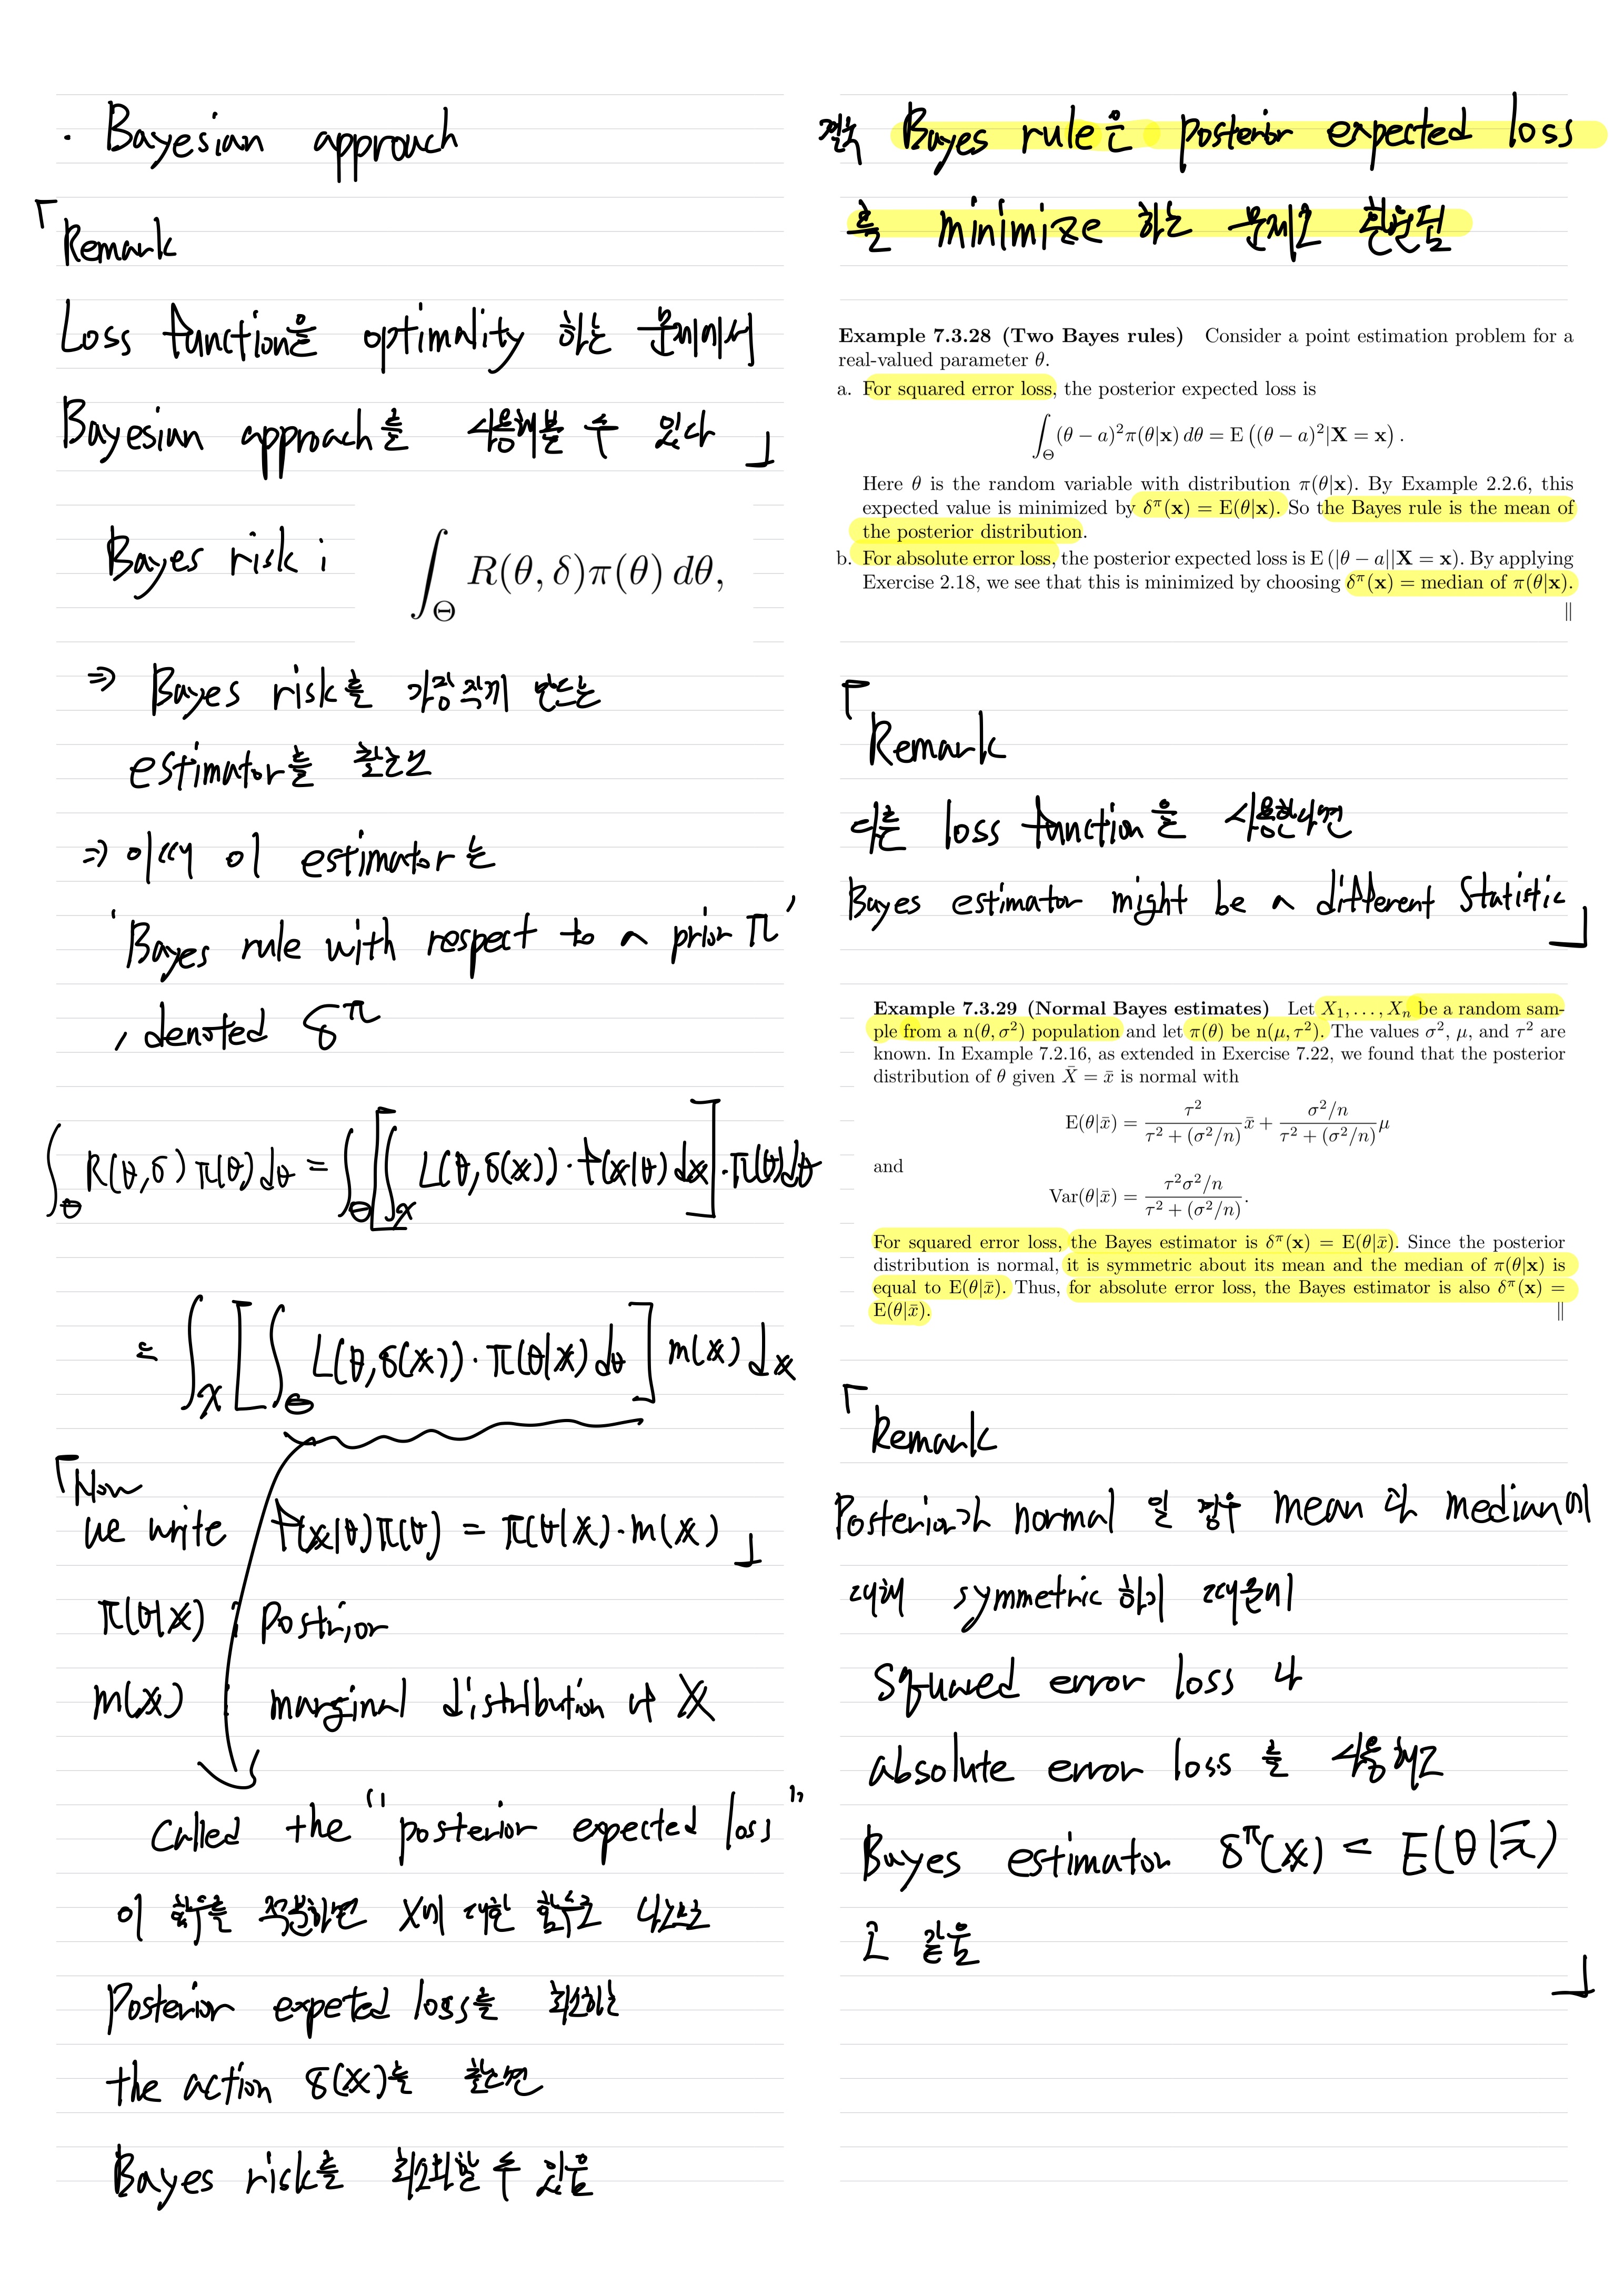 · Bayesian approach
「Remark
Loss function을 optimality 하는 문제에서
Bayesian approach를 사용해볼 수 있다 」
Bayes risk : ∫_Θ R(θ, δ)π(θ) dθ,
⇒ Bayes risk를 가장 작게 만드는
estimator를 찾는것
⇒ 이때 이 estimator는
'Bayes rule with respect to a prior π'
, denoted δ^π
∫_Θ R(θ,δ) π(θ) dθ = ∫_Θ [∫_X L(θ,δ(x))·f(x|θ) dx]·π(θ)dθ
= ∫_X [∫_Θ L(θ,δ(x))·π(θ|x) dθ] m(x) dx
「Now
we write f(x|θ)π(θ) = π(θ|x)·m(x) 」
π(θ|x) : Postrior
m(x) : marginal distribution of X
called the "posterior expected loss"
이 함수를 적분하면 X에 대한 함수로 나오므로
Posterior expeted loss를 최소하는
the action δ(x)를 찾으면
Bayes risk를 최소화할 수 있음
결국 Bayes rule은 posterior expected loss
를 minimize 하는 문제로 환원됨
Example 7.3.28 (Two Bayes rules) Consider a point estimation problem for a
real-valued parameter θ.
a. For squared error loss, the posterior expected loss is
∫_Θ (θ − a)²π(θ|x) dθ = E ((θ − a)²|X = x) .
Here θ is the random variable with distribution π(θ|x). By Example 2.2.6, this
expected value is minimized by δ^π(x) = E(θ|x). So the Bayes rule is the mean of
the posterior distribution.
b. For absolute error loss, the posterior expected loss is E (|θ − a||X = x). By applying
Exercise 2.18, we see that this is minimized by choosing δ^π(x) = median of π(θ|x).
‖
「Remark
다른 loss function을 사용한다면
Bayes estimator might be a different Statistic 」
Example 7.3.29 (Normal Bayes estimates) Let X₁, . . . , Xₙ be a random sam-
ple from a n(θ, σ²) population and let π(θ) be n(μ, τ²). The values σ², μ, and τ² are
known. In Example 7.2.16, as extended in Exercise 7.22, we found that the posterior
distribution of θ given X̄ = x̄ is normal with
E(θ|x̄) = τ²/(τ² + (σ²/n)) x̄ + (σ²/n)/(τ² + (σ²/n)) μ
and
Var(θ|x̄) = (τ²σ²/n)/(τ² + (σ²/n)).
For squared error loss, the Bayes estimator is δ^π(x) = E(θ|x̄). Since the posterior
distribution is normal, it is symmetric about its mean and the median of π(θ|x) is
equal to E(θ|x̄). Thus, for absolute error loss, the Bayes estimator is also δ^π(x) =
E(θ|x̄).
‖
「Remark
Posterior가 normal 일 경우 mean 과 median에
대해 symmetric 하기 때문에
Squared error loss 나
absolute error loss 를 사용해도
Bayes estimator δ^π(x) = E(θ|x̄)
로 같음 」